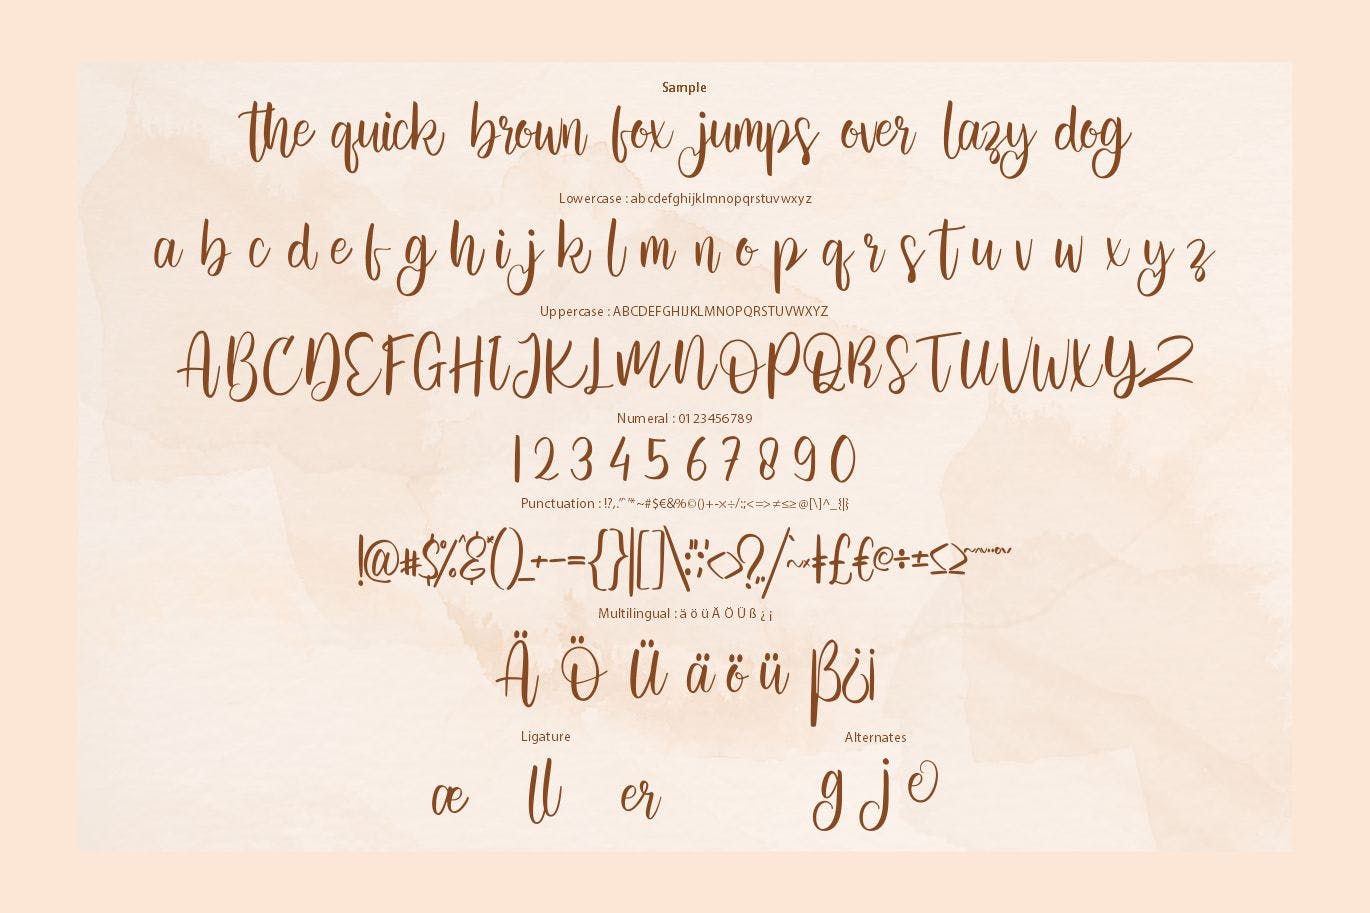 Sample
the quick brown fox jumps over lazy dog
Lowercase : abcdefghijklmnopqrstuvwxyz
a b c d e f g h i j k l m n o p q r s t u v w x y z
Uppercase : ABCDEFGHIJKLMNOPQRSTUVWXYZ
ABCDEFGHIJKLMNOPQRSTUVWXYZ
Numeral : 0123456789
1234567890
Punctuation : !?,."^"*~#$€&%©()+-×÷/:;<=>≠≤≥@[\]^_{|}
!@#$%^&*()_+-={}|[]\":';<>?,./`~×ƚ£€©÷±≤≥
Multilingual : ä ö ü Ä Ö Ü ß ¿ ¡
Ä Ö Ü ä ö ü ß¿¡
Ligature Alternates
æ ll er g j e